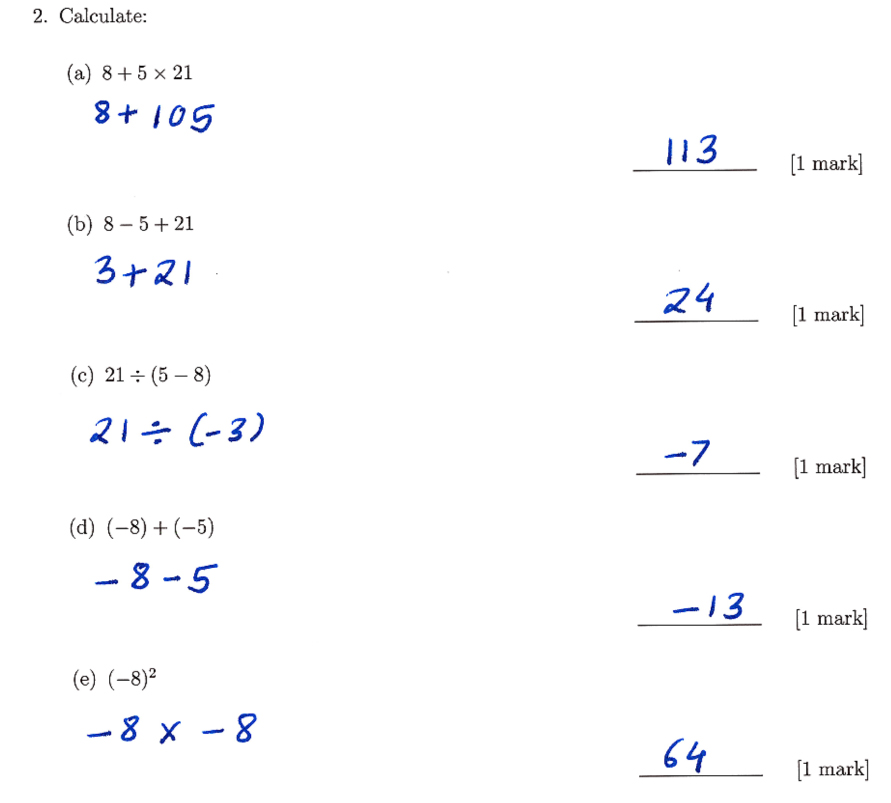 2. Calculate:
(a) 8 + 5 × 21
8 + 105
113 [1 mark]
(b) 8 − 5 + 21
3 + 21
24 [1 mark]
(c) 21 ÷ (5 − 8)
21 ÷ (-3)
-7 [1 mark]
(d) (−8) + (−5)
- 8 - 5
-13 [1 mark]
(e) (−8)²
- 8 × - 8
64 [1 mark]